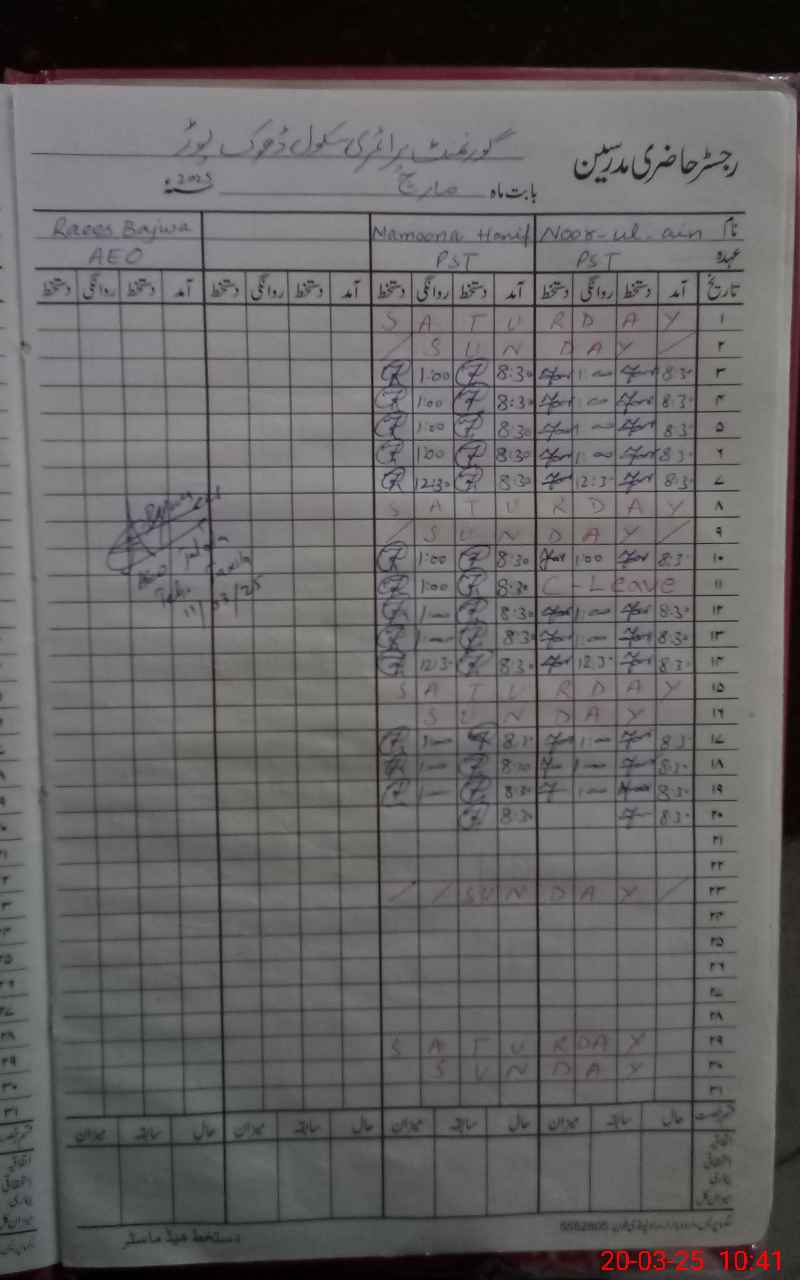 رجسٹر حاضری مدرسین
گورنمنٹ پرائمری سکول ڈھوک
بابت ماہ مارچ 2025ء
نام Noor-ul-ain Mamoona Hanif Raees Bajwa
عہدہ PST PST AEO
تاریخ آمد دستخط روانگی دستخط آمد دستخط روانگی دستخط آمد دستخط روانگی دستخط آمد دستخط روانگی دستخط
۱ SATURDAY
۲ / SUNDAY /
۳ 8:30 1:00 8:30 1:00
۴ 8:30 1:00 8:30 1:00
۵ 8:30 1:00 8:30 1:00
۶ 8:30 1:00 8:30 1:00
۷ 8:30 12:30 8:30 12:30
۸ SATURDAY
۹ / SUNDAY /
۱۰ 8:30 1:00 8:30 1:00
۱۱ C-Leave 8:30 1:00
11/03/25
۱۲ 8:30 1:00 8:30 1:00
۱۳ 8:30 1:00 8:30 1:00
۱۴ 8:30 12:30 8:30 12:30
۱۵ SATURDAY
۱۶ SUNDAY
۱۷ 8:30 1:00 8:30 1:00
۱۸ 8:30 1:00 8:30 1:00
۱۹ 8:30 1:00 8:30 1:00
۲۰ 8:30 8:30
۲۱
۲۲
۲۳ / / SUNDAY /
۲۴
۲۵
۲۶
۲۷
۲۸
۲۹ SATURDAY
۳۰ SUNDAY
۳۱
قسم رخصت حال سابقہ میزان حال سابقہ میزان حال سابقہ میزان حال سابقہ میزان
اتفاقی
استحقاقی
بیماری
میزان کل
دستخط ہیڈ ماسٹر
20-03-25 10:41